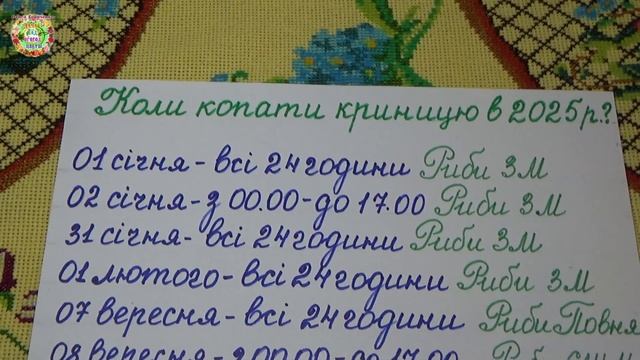 Коли копати криницю в 2025р.?
01 січня - всі 24 години Риби ЗМ
02 січня - з 00.00 - до 17.00 Риби ЗМ
31 січня - всі 24 години Риби ЗМ
01 лютого - всі 24 години Риби ЗМ
07 вересня - всі 24 години Риби Повня
08 вересня - з 00.00 - до 17.00